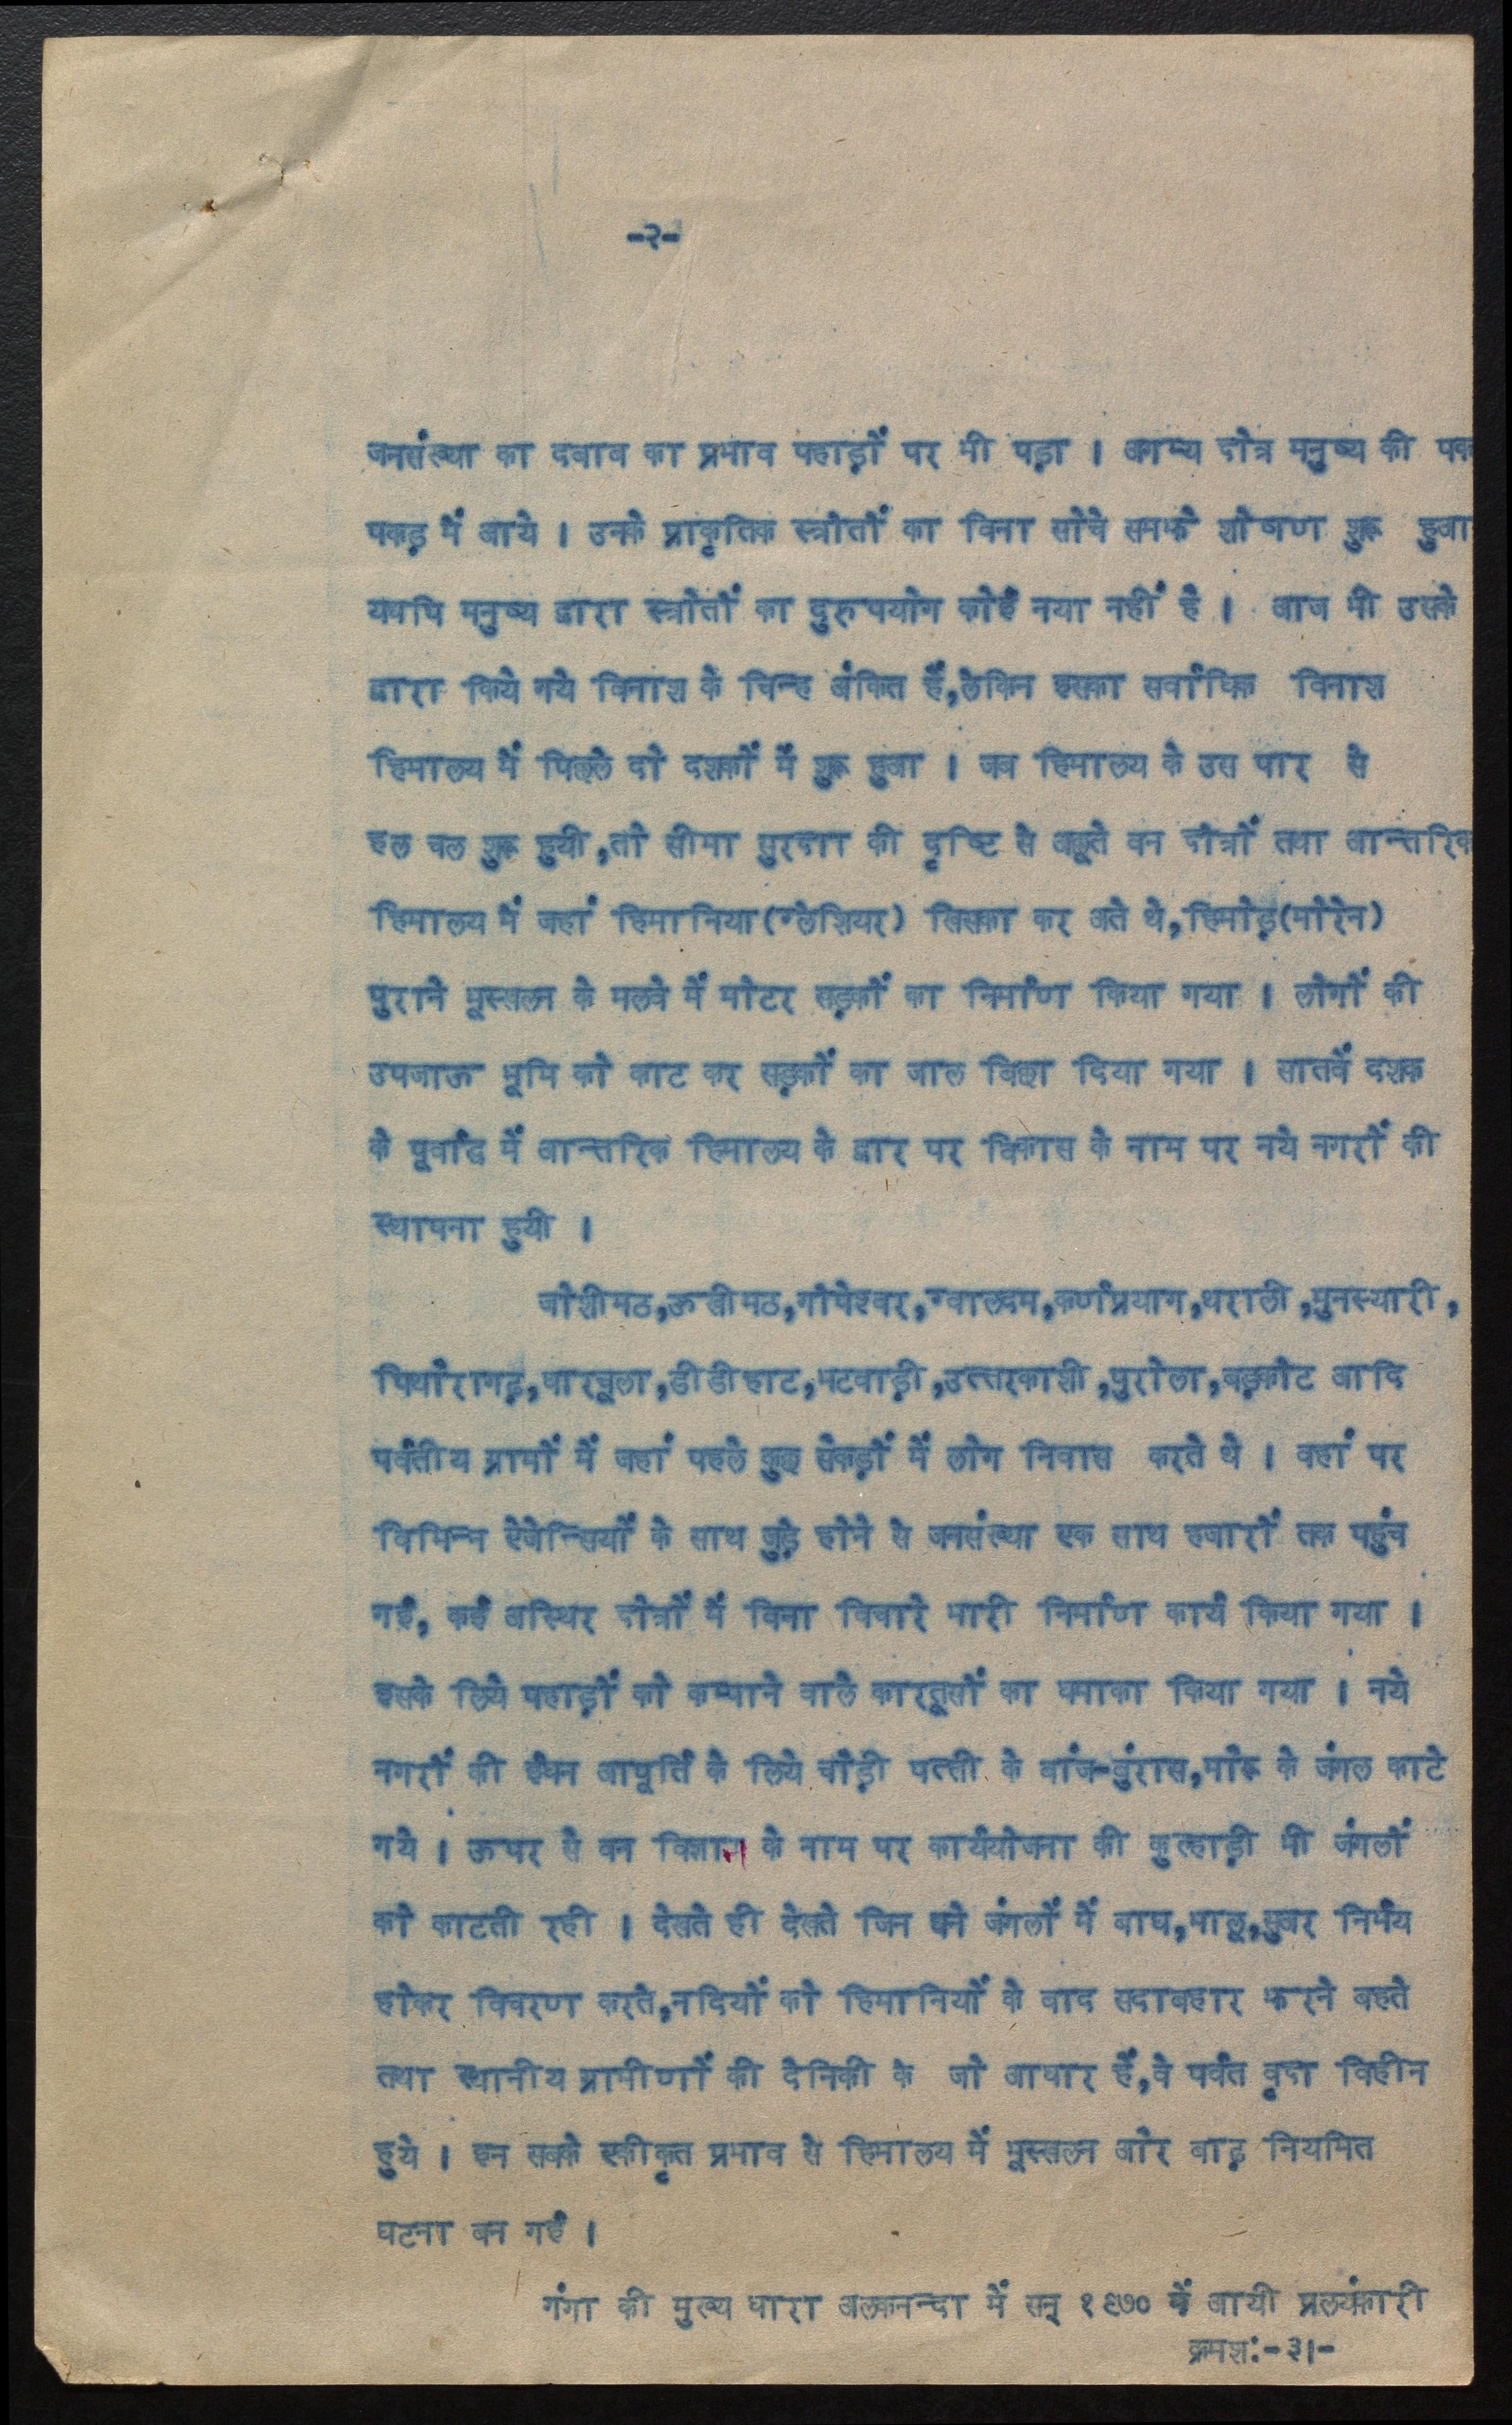 -२-
जनसंख्या का दबाव का प्रभाव पहाड़ों पर भी पड़ा । अगम्य क्षेत्र मनुष्य की पक
पकड़ में आये । उनके प्राकृतिक स्त्रोतों का विना सोचे समझे शोषण शुरू हुआ
यद्यपि मनुष्य द्वारा स्त्रोतों का दुरुपयोग कोई नया नहीं है । आज भी उसके
द्वारा किये गये विनाश के चिन्ह अंकित हैं,लेकिन इसका सर्वाधिक विनाश
हिमालय में पिछले दो दशकों में शुरू हुआ । जब हिमालय के उस पार से
हल चल शुरू हुयी,तो सीमा सुरक्षा की दृष्टि से अछूते वन क्षेत्रों तथा आन्तरिक
हिमालय में जहां हिमानिया(ग्लेशियर) खिसका कर अते थे,हिमोड़(मोरेन)
पुराने भूस्खलन के मलवे में मोटर सड़कों का निर्माण किया गया । लोगों की
उपजाऊ भूमि को काट कर सड़कों का जाल विछा दिया गया । सातवें दशक
के पूर्वाद्ध में आन्तरिक हिमालय के द्वार पर विकास के नाम पर नये नगरों की
स्थापना हुयी ।
जोशीमठ,ऊखीमठ,गोपेश्वर,ग्वालदम,कर्णप्रयाग,थराली,मुनस्यारी,
पिथौरागढ़,धारचूला,डीडीहाट,भटवाड़ी,उत्तरकाशी,पुरोला,बड़कोट आदि
पर्वतीय ग्रामों में जहां पहले कुछ सेकड़ों में लोग निवास करते थे । वहां पर
विभिन्न ऐजेन्सियों के साथ जुड़े होने से जनसंख्या एक साथ हजारों तक पहुंच
गई, कई अस्थिर क्षेत्रों में विना विचारे भारी निर्माण कार्य किया गया ।
इसके लिये पहाड़ों को कम्पाने वाले कारतूसों का धमाका किया गया । नये
नगरों की ईंधन आपूर्ति के लिये चौड़ी पत्ती के बांज-बुंरास,मोरू के जंगल काटे
गये । ऊपर से वन विज्ञान के नाम पर कार्ययोजना की कुल्हाड़ी भी जंगलों
को काटती रही । देखते ही देखते जिन घने जंगलों में बाघ,भालू,सुअर निर्भय
होकर विचरण करते,नदियों को हिमानियों के बाद सदाबहार झरने बहते
तथा स्थानीय ग्रामीणों की दैनिकी के जो आधार हैं,वे पर्वत वृक्ष विहीन
हुये । इन सबके एकीकृत प्रभाव से हिमालय में भूस्खलन और बाढ़ नियमित
घटना बन गई ।
गंगा की मुख्य धारा अलकनन्दा में सन् १९७० में आयी प्रलयंकारी
क्रमश:-३।-